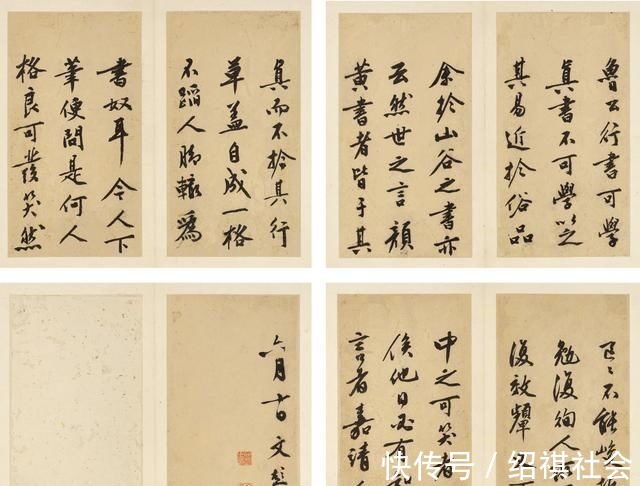 魯公行書可學
真書不可學以
其易近於俗品
余於山谷之書亦
云然世之言顏
黃書者皆于其
真而不於其行
草蓋自成一格
不蹈人腳轍為
書奴耳今人下
筆便問是何人
格良可發笑然
不能
勉復徇人
復效顰
中之可笑者
俟他日必有
言者嘉靖
六月十日文彭
快传号 / 绍祺社会